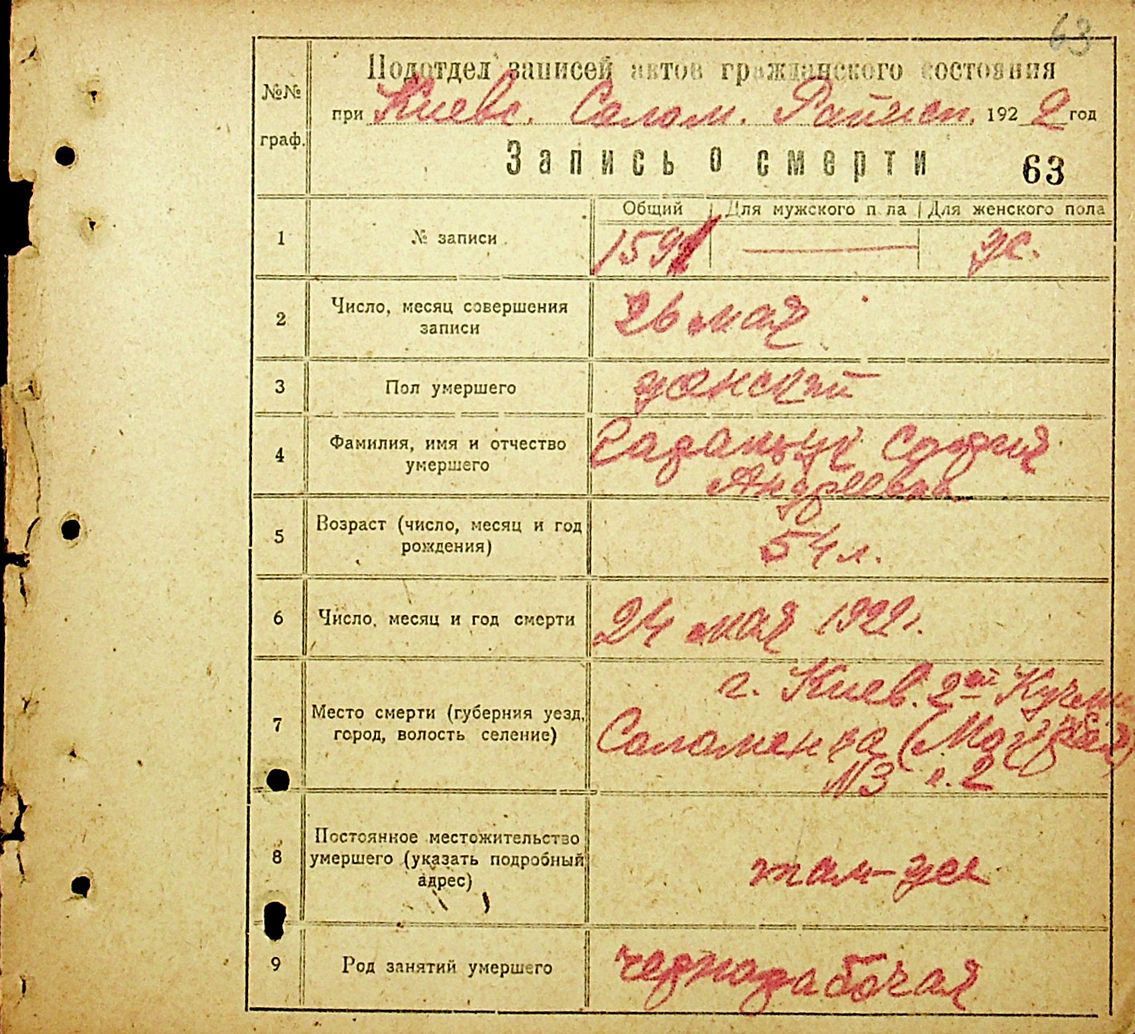 63
Подотдел записей актов гражданского состояния
№№ граф.
при Киевс. Салом. Райисп. 1922 год
Запись о смерти 63
Общий Для мужского пола Для женского пола
1 № записи 1591 — ж.
2 Число, месяц совершения записи 26 мая
3 Пол умершего женский
4 Фамилия, имя и отчество умершего София
5 Возраст (число, месяц и год рождения) 54 л.
6 Число, месяц и год смерти 24 мая 1922 г.
7 Место смерти (губерния уезд, город, волость селение) г. Киев. 2ой
Соломенка
N3
8 Постоянное местожительство умершего (указать подробный адрес) там-же
9 Род занятий умершего чернорабочая